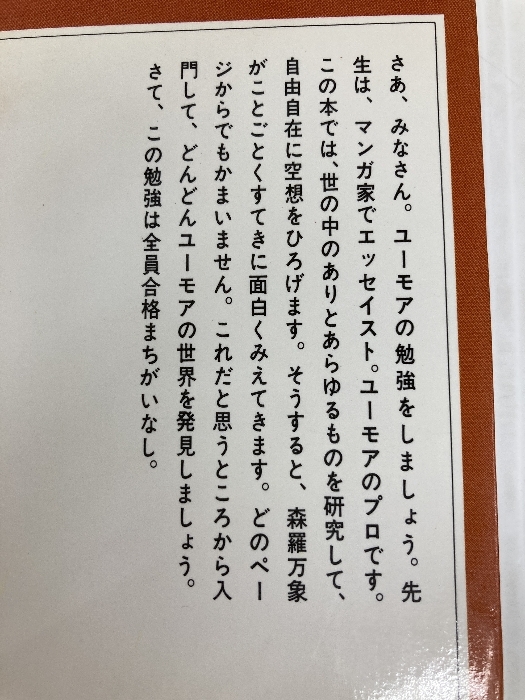 さあ、みなさん。ユーモアの勉強をしましょう。先
生は、マンガ家でエッセイスト。ユーモアのプロです。
この本では、世の中のありとあらゆるものを研究して、
自由自在に空想をひろげます。そうすると、森羅万象
がことごとくすてきに面白くみえてきます。どのペー
ジからでもかまいません。これだと思うところから入
門して、どんどんユーモアの世界を発見しましょう。
さて、この勉強は全員合格まちがいなし。